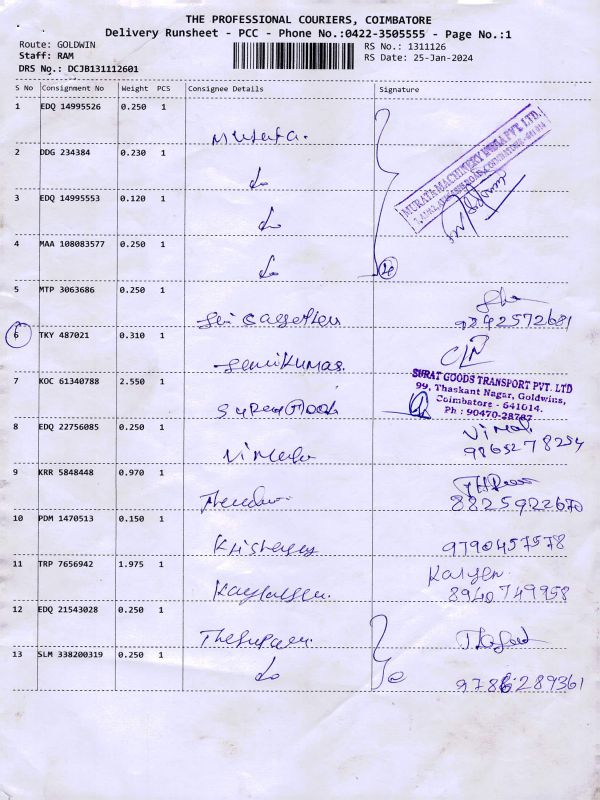 THE PROFESSIONAL COURIERS, COIMBATORE
Delivery Runsheet - PCC - Phone No.:0422-3505555 - Page No.:1
Route: GOLDWIN
RS No.: 1311126
Staff: RAM
RS Date: 25-Jan-2024
DRS No.: DCJB131112601
S No Consignment No Weight PCS Consignee Details Signature
1 EDQ 14995526 0.250 1
MURATA MACHINERY INDIA PVT. LTD.
Murata.
2 DDG 234384 0.230 1
Do
3 EDQ 14995553 0.120 1
Do
4 MAA 108083577 0.250 1
Do 4
5 MTP 3063686 0.250 1
9842572681
6 TKY 487021 0.310 1
SURAT GOODS TRANSPORT PVT. LTD
99, Thaskant Nagar, Goldwins,
Coimbatore - 641014.
Ph : 90470-28787
7 KOC 61340788 2.550 1
8 EDQ 22756085 0.250 1
Vimal
9865278254
9 KRR 5848448 0.970 1
8825922670
10 PDM 1470513 0.150 1
9790457578
11 TRP 7656942 1.975 1
8940749958
12 EDQ 21543028 0.250 1
13 SLM 338200319 0.250 1
Do
9786289361